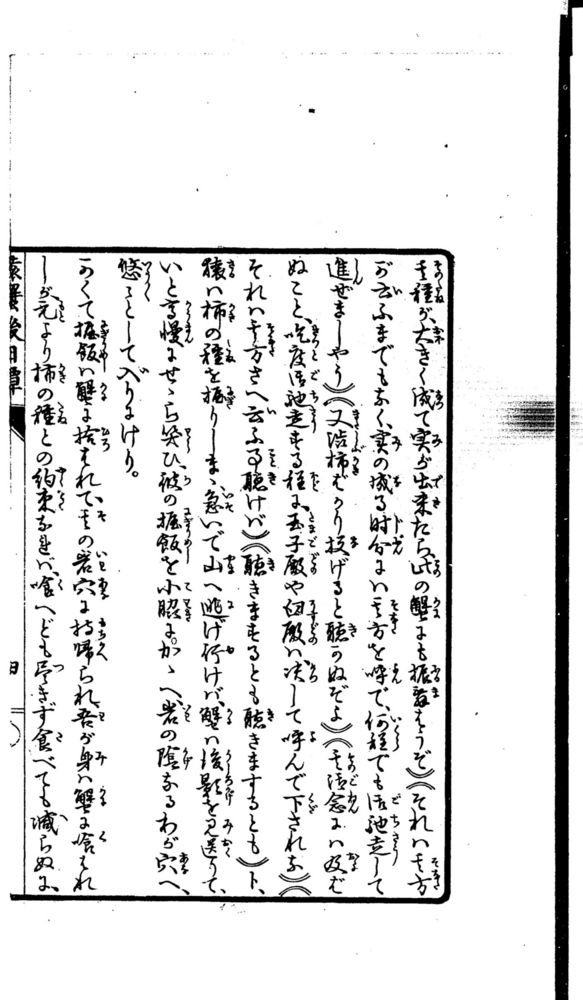 其種が、大きく成て実が出来たら、此の蟹にも振舞はうぞ)(それハ其方
が云ふまでもなく、実の成る時分にハ其方を呼で、何程でも御馳走して
進ぜましやう)(又渋柿ばかり投げると聴かぬぞよ)(其御念にハ及ば
ぬこと、吃度御馳走をする程に、玉子殿や臼殿ハ決して呼んで下されな)(
それハ其方さへ云ふ事を聴けバ)(聴きまするとも聴きまするとも)ト、
猿ハ柿の種を握りしまゝ、急いで山へ逃げ行けバ、蟹ハ後影を見送りて、
いと高慢にせゝら笑ひ、彼の握飯を小脇にかゝへ、岩の陰なるわが穴へ、
悠々として入りにけり。
かくて握飯ハ蟹に拾はれて、其の岩穴に持帰られ、吾が身ハ蟹に喰はれ
しが、元より柿の種との約束なれバ、喰へども尽きず食べても減らぬに、
猿蟹後日譚
四